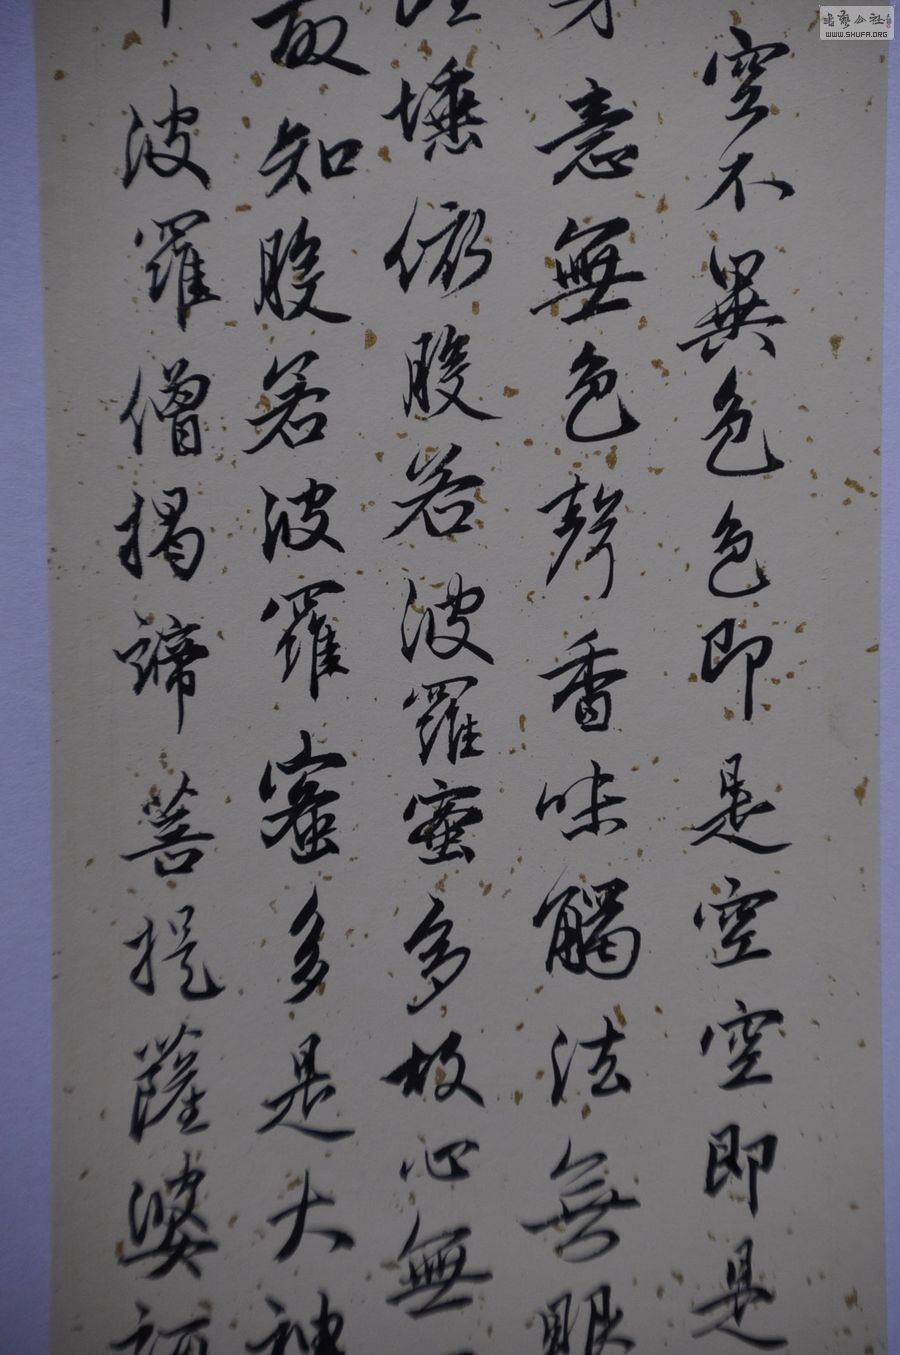 空不異色色即是空空即是
意無色聲香味觸法無眼
埵依般若波羅蜜多故心無
故知般若波羅蜜多是大神
波羅僧揭諦菩提薩婆訶
WWW.SHUFA.ORG